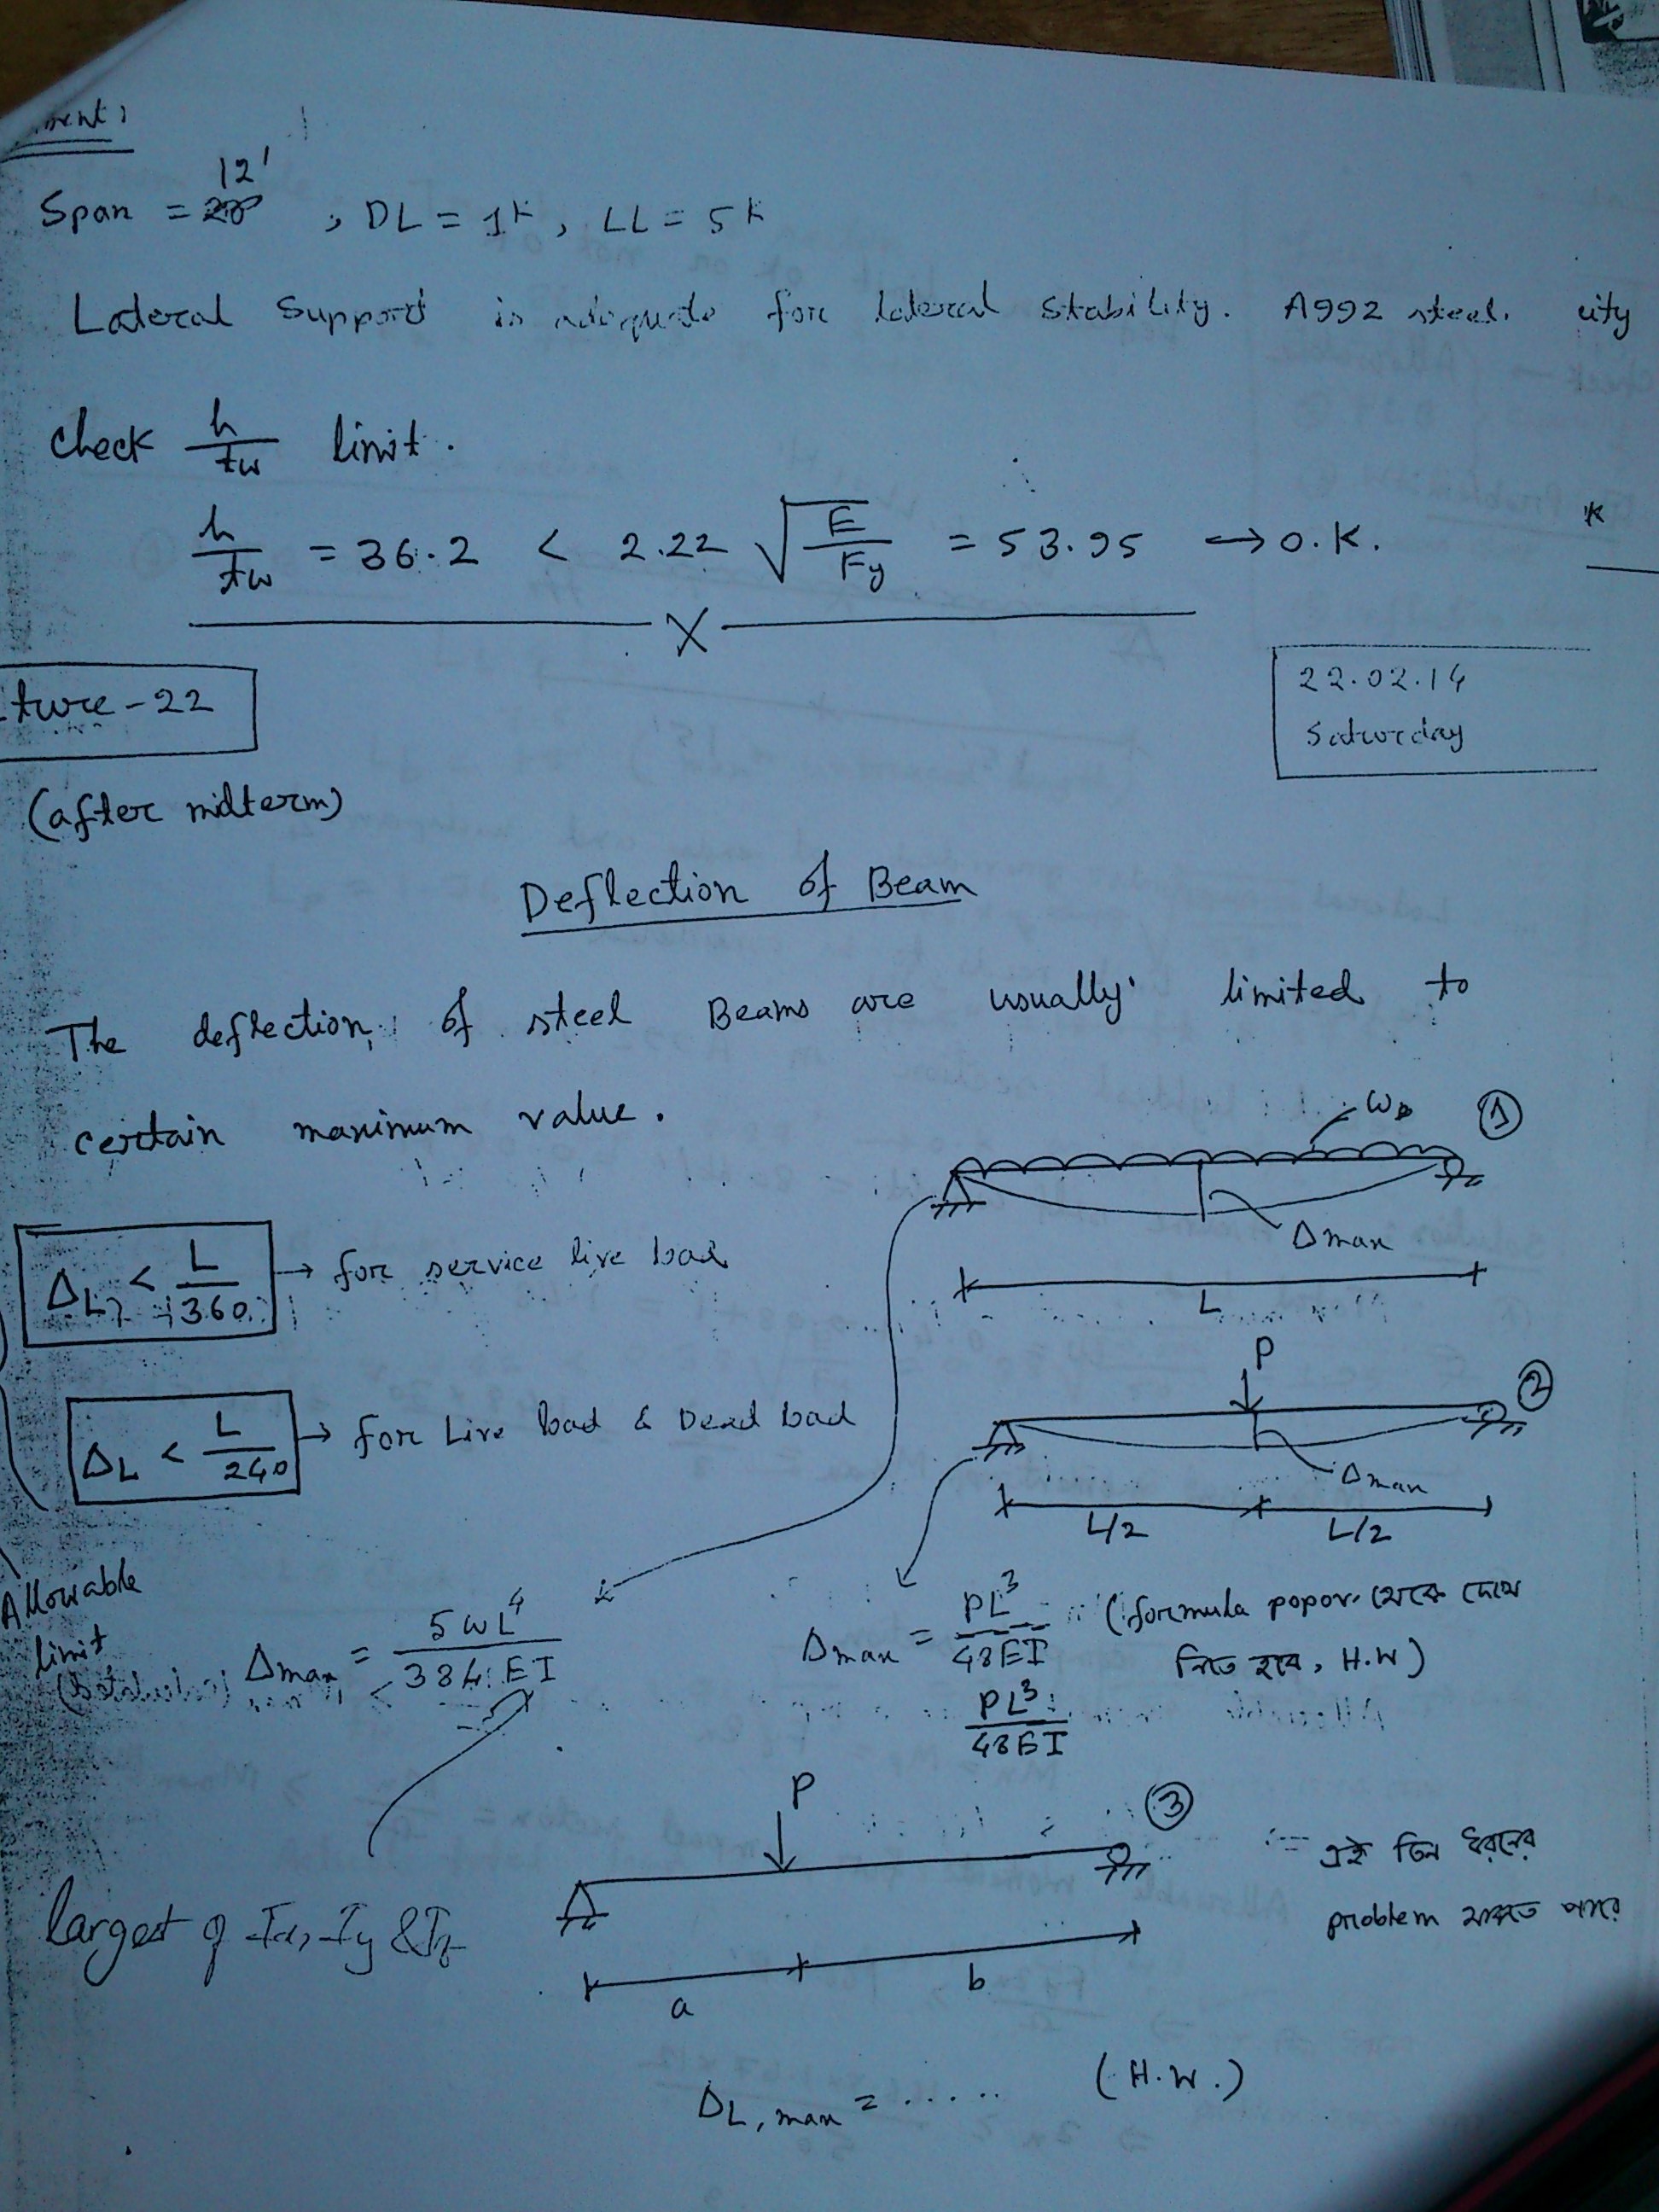 Span = 12' , DL = 1K, LL = 5K
Lateral Support is adequate for lateral stability. A992 steel. city
check h/tw limit.
h/tw = 36.2 < 2.22 √(E/Fy) = 53.95 → O.K.
X
ture-22
22.02.14
Saturday
(after midterm)
Deflection of Beam
The deflection of steel Beams are usually limited to
certain maximum value.
ω
①
Δmax
L
ΔL < L/360 → for service live load
P
②
Δmax
L/2 L/2
ΔL < L/240 → for Live load & Dead load
Allowable
limit
Δmax = 5ωL⁴/384EI
Δmax = PL³/48EI (formula থেকে দেখে
নিতে হবে, H.W)
PL³/48EI
P
③
এই তিন ধরনের
problem থাকতে পারে
largest of Ix, Iy & Iz
a b
ΔL, max = ...... (H.W.)